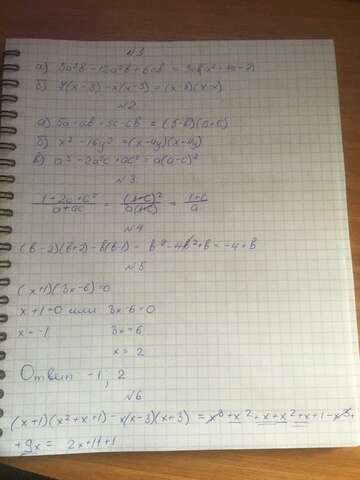 №1
а) 3a³b - 12a²b + 6ab = 3ab(a² - 4a + 2)
б) 4(x-3) - x(x-3) = (x-3)(4-x)
№2
а) 5a - ab + 5c - cb = (5-b)(a+c)
б) x² - 16y² = (x-4y)(x+4y)
в) a³ - 2a²c + ac² = a(a-c)²
№3
(1+2c+c²)/(a+ac) = (1+c)²/(a(1+c)) = (1+c)/a
№4
(b-2)(b+2) - b(b-1) = b² - 4 - b² + b = -4 + b
№5
(x+1)(3x-6)=0
x+1=0 или 3x-6=0
x=-1 3x=6
x = 2
Ответ -1, 2
№6
(x+1)(x²+x+1) - x(x-3)(x+3) = x³+x²+x+x²+x+1-x³+
+9x =